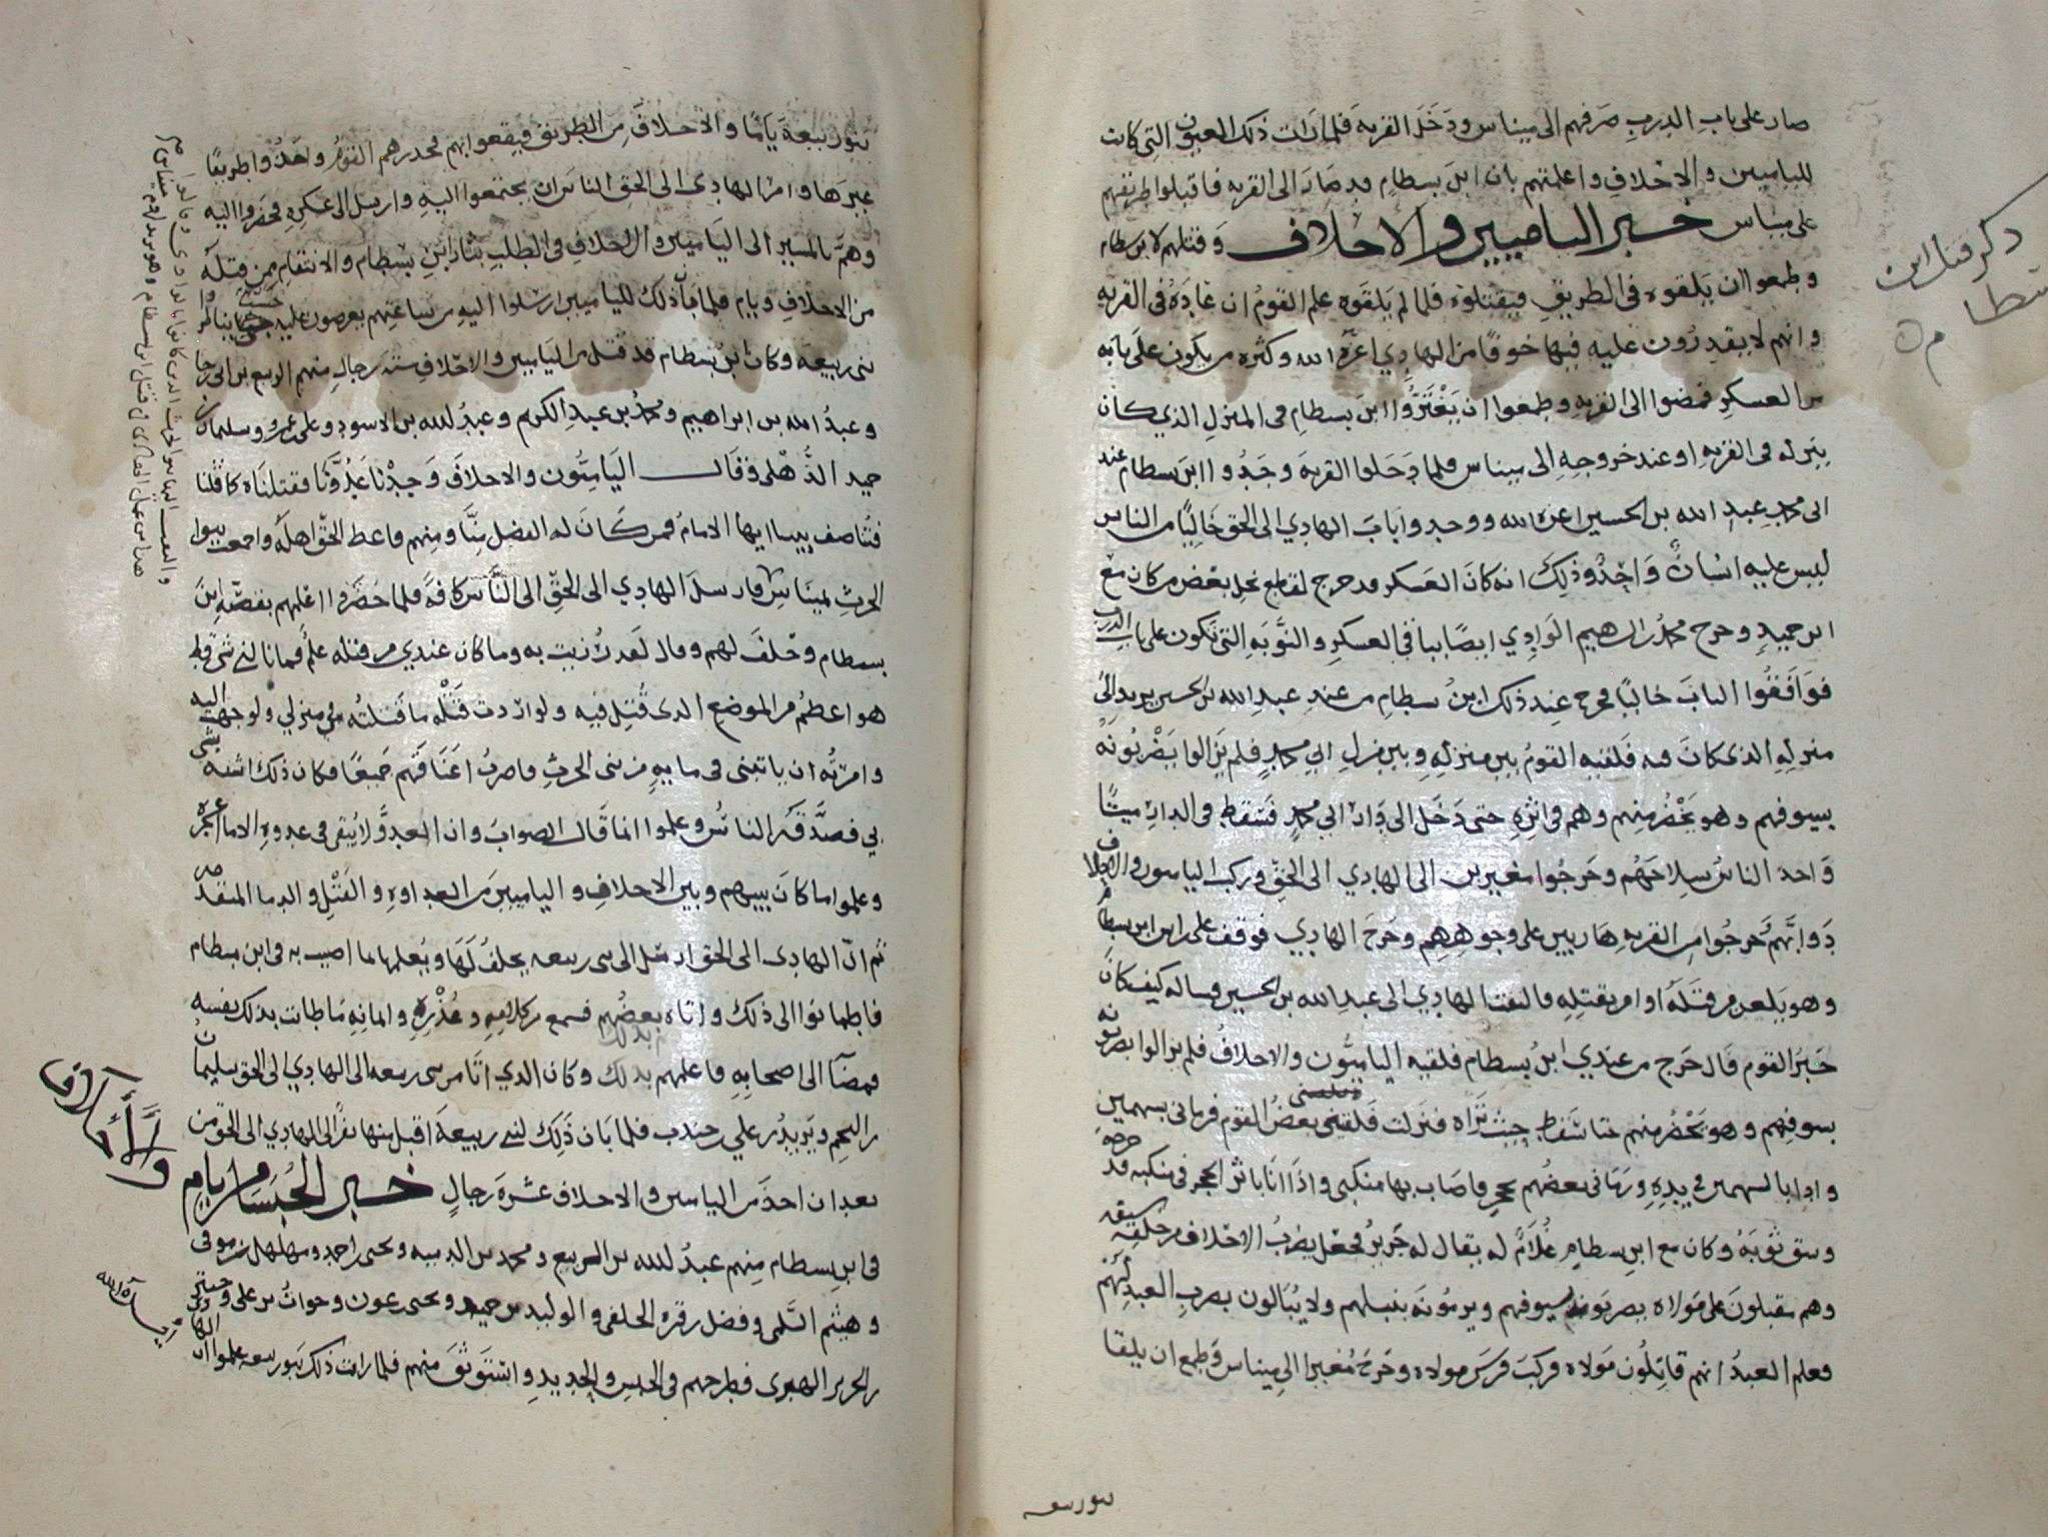 صار على باب الدرب صرفهم الى ميناس ودخل القريه فلما رات ذلك العيون التي كانت
لليامیين والاحلاف واعلمتهم بان ابن بسطام قد صار الى القريه فاقبلوا طريقهم
على ميناس خبر الياميين والاحلاف وقتلهم لابن بسطام
وطمعوا ان يلقوه في الطريق فيقتلوه فلما لم يلقوه علم القوم ان غاده في القريه
وانهم لا يقدرون عليه فيها خوفا من الهادي اعزه الله وكثره من يكون على بابه
من العسكر فمضوا الى القريه وطمعوا ان يغتروا ابن بسطام في المنزل الذي كان
ينزله في القريه او عند خروجه الى ميناس فلما دخلوا القريه وجدوا ابن بسطام عند
ابي محمد عبد الله بن الحسين اعزه الله ووجدوا باب الهادي الى الحق خاليا من الناس
ليس عليه انسان واحد وذلك انه كان العسكر قد خرج لقطع نخل بعض من كان مع
ابن حميد وخرج محمد بن ابراهيم الوادي ايضا في العسكر والنوبه التي تكون على باب الدرب
فوافقوا الباب خاليا فخرج عند ذلك ابن بسطام من عند عبد الله بن الحسين يريد الى
منزله الذي كان فيه فلقيه القوم بين منزله وبين منزل ابي محمد فلم يزالوا يضربونه
بسيوفهم وهو يحضر منهم وهم في اثره حتى دخل الى دار ابي محمد فسقط في الدار ميتا
واخذ الناس سلاحهم وخرجوا مغيرين الى الهادي الى الحق وركب الياميون والاحلاف
دوابهم وخرجوا من القريه هاربين على وجوههم وخرج الهادي فوقف على راس ابن بسطام
وهو يلعن من قتله او امر بقتله فالتفت الهادي الى عبد الله بن الحسين فساله كيف كان
خبر القوم قال خرج من عندي ابن بسطام فلقيه الياميون والاحلاف فلم يزالوا يضربونه
بسيوفهم وهو يحضر منهم حتا سقط حيث تراه فنزلت فلقيني بعض القوم فرماني بسهمين
واذا بالسهمين في يده ورماني بعضهم بحجر فاصاب بها منكبي واذا انا باثر الحجر في منكبه قد جرحه
وشق ثوبه وكان مع ابن بسطام غلام له يقال له جرير فجعل يضرب الاحلاف من خلفه بسيفه
وهم مقبلون على مولاه يضربونه بسيوفهم ويرمونه بنبلهم ولا يبالون بضرب العبد لهم
فعلم العبد انهم قاتلون مولاه فركب فرس مولاه وخرج مغيرا الى ميناس وطمع ان يلقا
بنو ربيعه
ذكر قتل ابن
بسطام
بنو ربيعة ياما والاحلاف من الطريق فيقعوا بهم فحذرهم القوم واخذوا طريقا
غيرها وامر الهادي الى الحق الناس ان يجتمعوا اليه وارسل الى عسكره فحضروا اليه
وهم بالمسير الى الياميين والاحلاف في الطلب بثار ابن بسطام والانتقام ممن قتله
من الاحلاف ويام فلما بان ذلك لليامیين ارسلوا اليه من ساعتهم يعرضون عليه
بني ربيعه وكان ابن بسطام قد قتل من الياميين والاحلاف سته رجال منهم الربيع بن ابي رجا
وعبد الله بن ابراهيم ومحمد بن عبد الكريم وعبد الله بن الاسود وعلي بن عمرو وسليمان بن
حميد الذهلي فقال الياميون والاحلاف وجدنا عدونا فقتلناه كما قتلنا
فتناصف بيننا ايها الامام فمن كان له الفضل منا ومنهم فاعط الحق اهله واجمعت بنوا
الحرث لميناس فارسل الهادي الى الحق الى الناس كافة فلما حضروا اعلمهم بقصه ابن
بسطام وحلف لهم وقال لقد رزيت به وما كان عندي من قتله علم فما نالني شي قط
هو اعظم من الموضع الذي قتل فيه ولو اردت قتله ما قتلته في منزلي ولوجهت اليه
وامرته ان ياتيني في مايه من بني الحرث فاضرب اعناقهم جميعا فكان ذلك اشبه بشي
بي فصدقه الناس وعلموا انما قال الصواب وان العدو لا يبقى في عدوه الاما عجز
وعلموا ما كان بينهم وبين الاحلاف والياميين من العداوه والقتل والدما المتقدمه
ثم ان الهادي الى الحق ارسل الى بني ربيعه يحلف لها ويعلمها بما اصيب به في ابن بسطام
فاطمانوا الى ذلك واتاه بعضهم فسمع من كلامه وعذره وامانه ما طابت بذلك نفسه
فمضا الى اصحابه فاعلمهم بذلك وكان الذي اتا من بني ربيعه الى الهادي الى الحق سليمان
بن الحم ويزيد بن علي بن جندب فلما بان ذلك لبني ربيعة اقبل منها نفر الى الهادي الى الحق من
بعد ان اخذ من الياميين والاحلاف عشرة رجال خبر الحبسا من يام
والأحلاف
في ابن بسطام منهم عبد الله بن الربيع ومحمد بن الدبيه ويحيى بن احمد ومهلهل بن موقي
وهيثم السلمي وفضل بن قره الخلفي والوليد بن حميد ويحيى بن عون وحواث بن علي
بن الحرير الهبري فطرحهم في الحبس والحديد واستوثق منهم فلما رات ذلك بنو ربيعه علموا ان